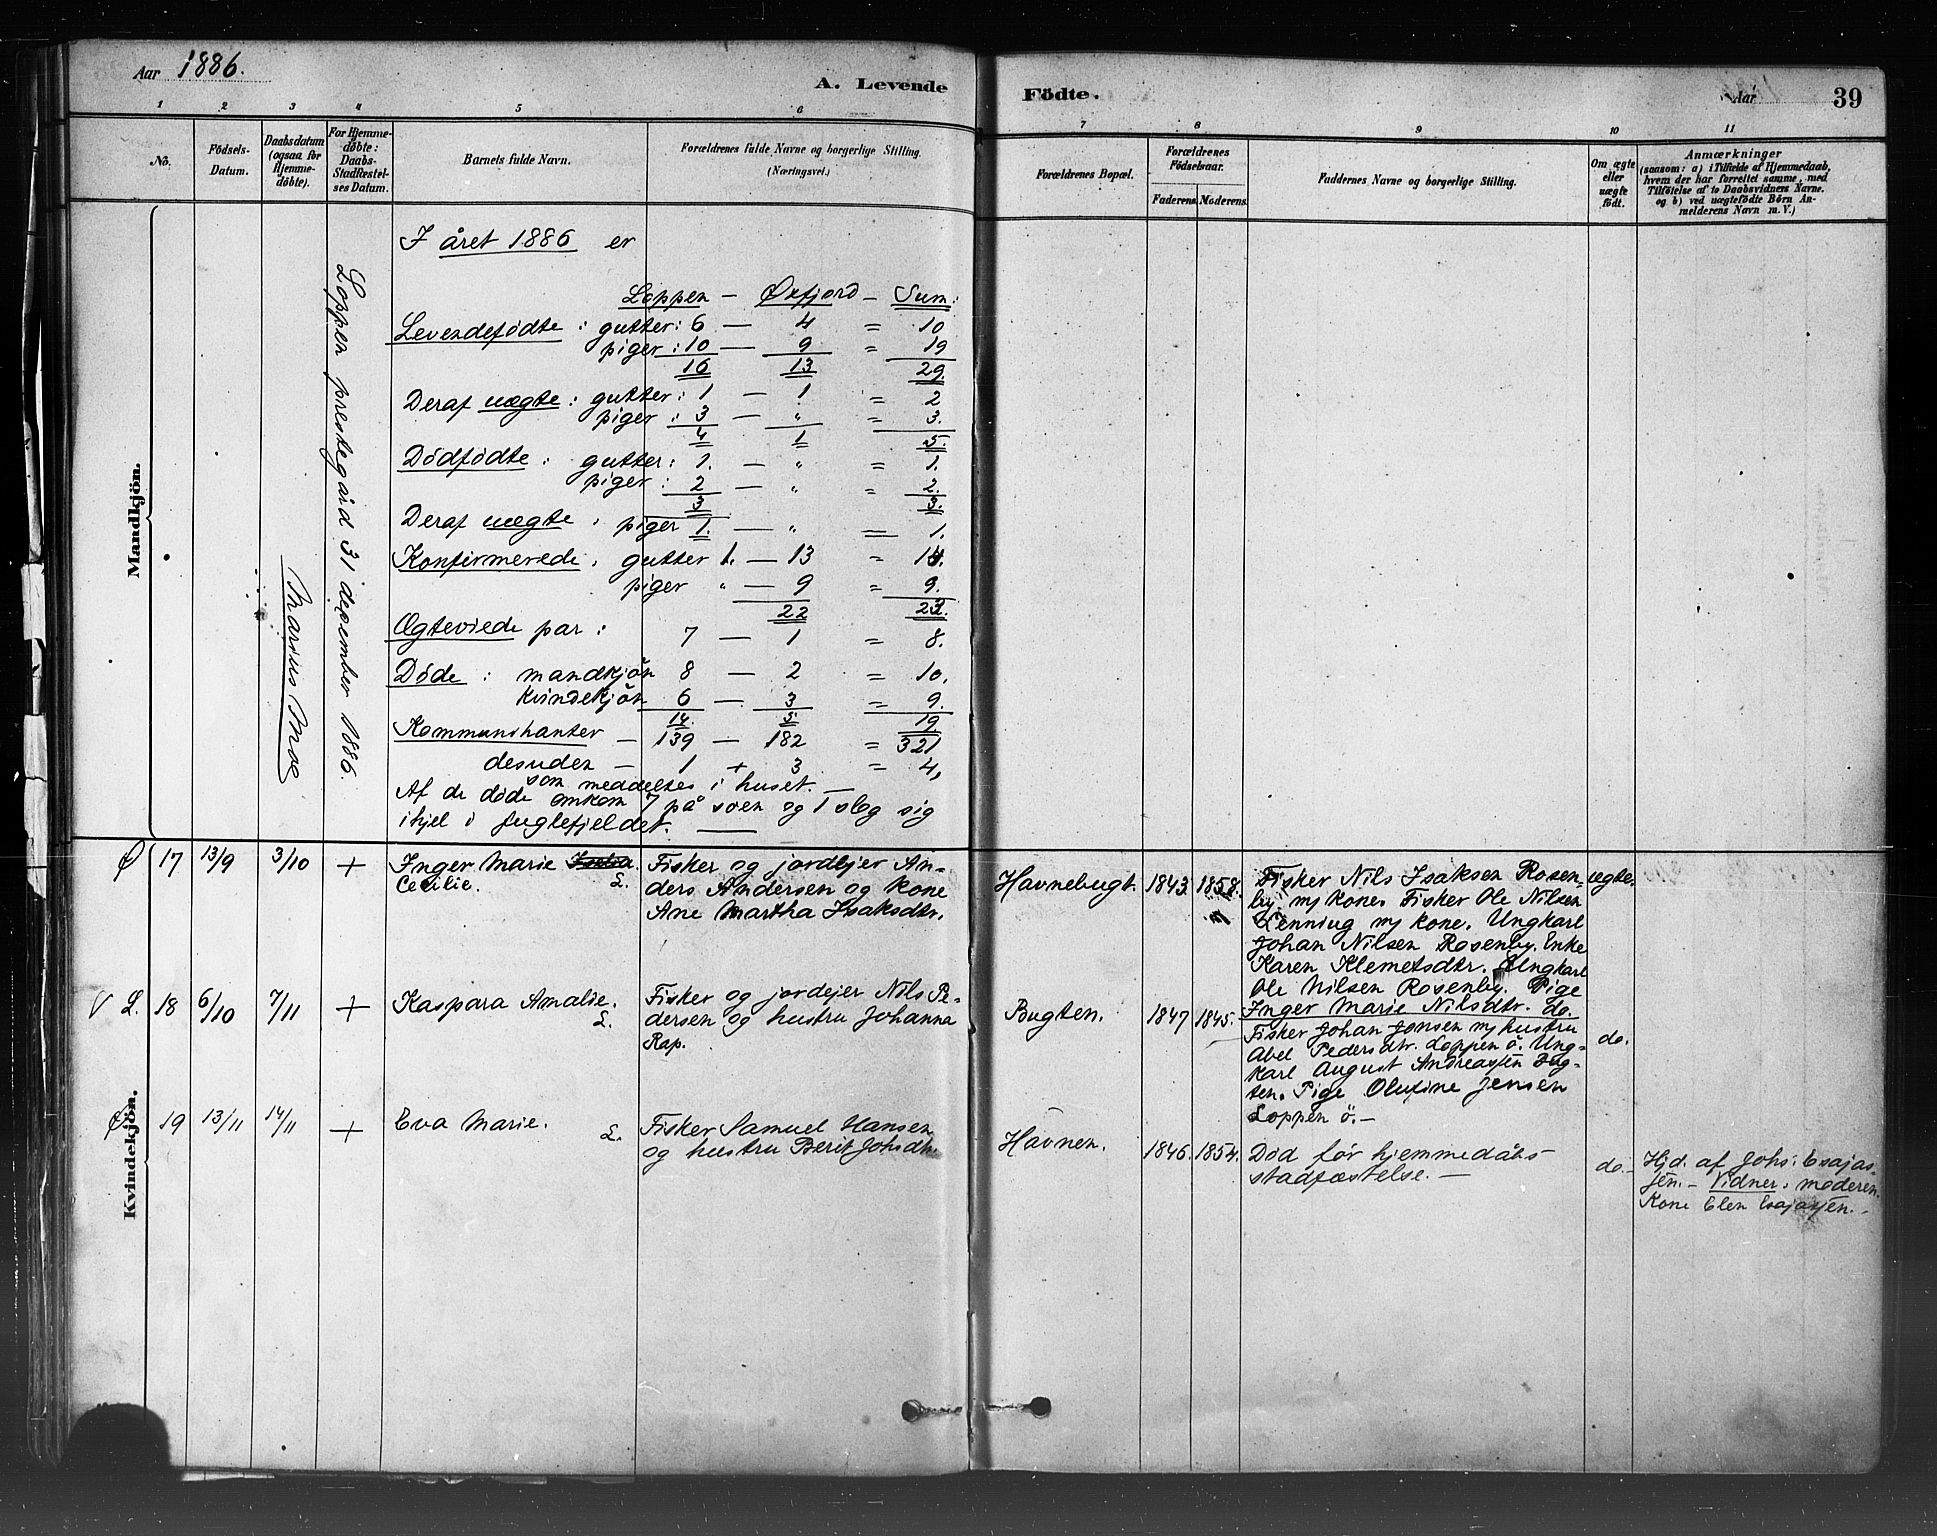 Aar 1886.
A. Levende
Födte.
Aar
39
1 2 3 4 5 6
7 8 9 10 11
No.
Födsels-
Datum.
Daabsdatum
(ogsaa for
Hjemme-
döbte).
For Hjemme-
döbte:
Daabs-
Stadfæstel-
ses Datum.
Barnets fulde Navn.
Forældrenes fulde Navne og borgerlige Stilling.
(Næringsvei.)
Forældrenes Bopæl.
Forældrenes
Födselsaar.
Faderens. Moderens.
Faddernes Navne og borgerlige Stilling.
Om ægte
eller
uægte
födt.
Anmærkninger
(saasom: a) i Tilfælde af Hjemmedaab,
hvem der har forrettet samme, med
Tilföielse af to Daabsvidners Navne,
og b) ved uægtefödte Börn An-
melderens Navn m. V.)
Mandkjön.
I året 1886 er
Loppen — Øxfjord — Sum:
Levendefödte : gutter: 6 — 4 = 10
piger : 10 — 9 = 19
16 13 29.
Deraf uægte : gutter : 1 — 1 = 2
piger : 3 — " = 3.
4 1 5.
Dödfödte : gutter : 1. — " = 1.
piger : 2 — " = 2.
3 3.
Deraf uægte : piger 1. — " — 1.
Konfirmerede : gutter 1. — 13 = 14.
piger " — 9 = 9.
22 23.
Ægteviede par : 7 — 1 = 8.
Döde : mandkjön 8 — 2 = 10.
kvindekjön 6 — 3 = 9.
14. 5 19
Kommunikanter — 139 — 182 = 321
desuden — 1 + 3 = 4,
som meddeltes i huset. —
Af de döde omkom 7 på soen og 1 slog sig
ihjel i fuglefjeldet. —
Loppen prestegård 31 desember 1886.
Marius Moe
Kvindekjön.
Ø 17 13/9 3/10 + Inger Marie
Cecilie. L.
Fisker og jordejer An-
ders Andersen og kone
Ane Martha Isaksdtr.
Havnebugt. 1843. 1858.
Fisker Nils Isaksen Rosen-
by m/ kone. Fisker Ole Nilsen
Lenning m/ kone. Ungkarl
Johan Nilsen Rosenby. Enke
Karen Klemetsdtr. Ungkarl
Ole Nilsen Rosenby. Pige
Inger Marie Nilsdtr. do.
ægte.
V L. 18 6/10 7/11 + Kaspara Amalie.
L.
Fisker og jordejer Nils Pe-
dersen og hustru Johanna
Rap.
Bugten. 1847 1845.
Fisker Johan Jonsen m/ hustru
Abel Pedersdtr. Loppen ö. Ung-
karl August Andreassen Bug-
ten. Pige Olufine Jensen
Loppen ö. —
do.
Ø 19 13/11 14/11 + Eva Marie.
L.
Fisker Samuel Hansen
og hustru Berit Johsdtr.
Havnen. 1846. 1854.
Död för hjemmedåbs-
stadfæstelse. —
do. —
Hjd. af Johs. Esajas-
sen. — Vidner: moderen.
Kone Elen Esajassen. —